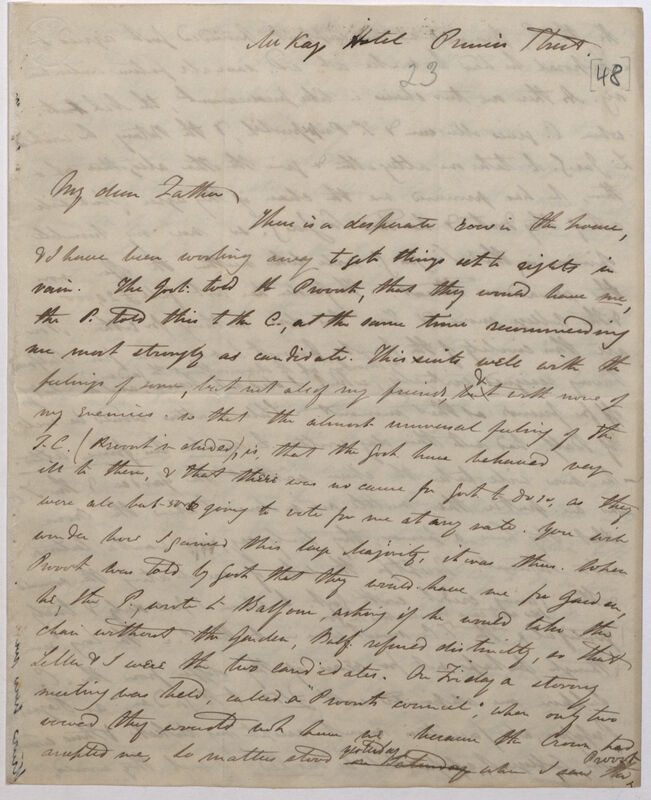 McKays Hotel Princes Street.
23
[48]
My dear Father
There is a desperate row in the house,
& I have been working away to get things set to rights in
vain. The Govt. told the Provost, that they would have me,
the P. told this to the C., at the same time recommending
me most strongly as candidate. This suits well with the
feelings of some, but not all of my friends, & with none of
my enemies. so that the almost universal feeling of the
T.C. (Provost included), is, that the Govt have behaved very
ill to them, & that there was no cause for Govt to do so, as they
were all but going to vote for me at any rate. You will
wonder how I gained this large Majority, it was thus. When
Provost was told by Govt that they would have me for Garden,
he, the P., wrote to Balfour, asking if he would take the
chair without the Garden, Balf. refused distinctly, so that
& I were the two candidates. On Friday a stormy
meeting was held, called a "Provosts council", when only two
vowed they would not have me because the Crown had
accepted me. So matters stood yesterday when I saw the Provost